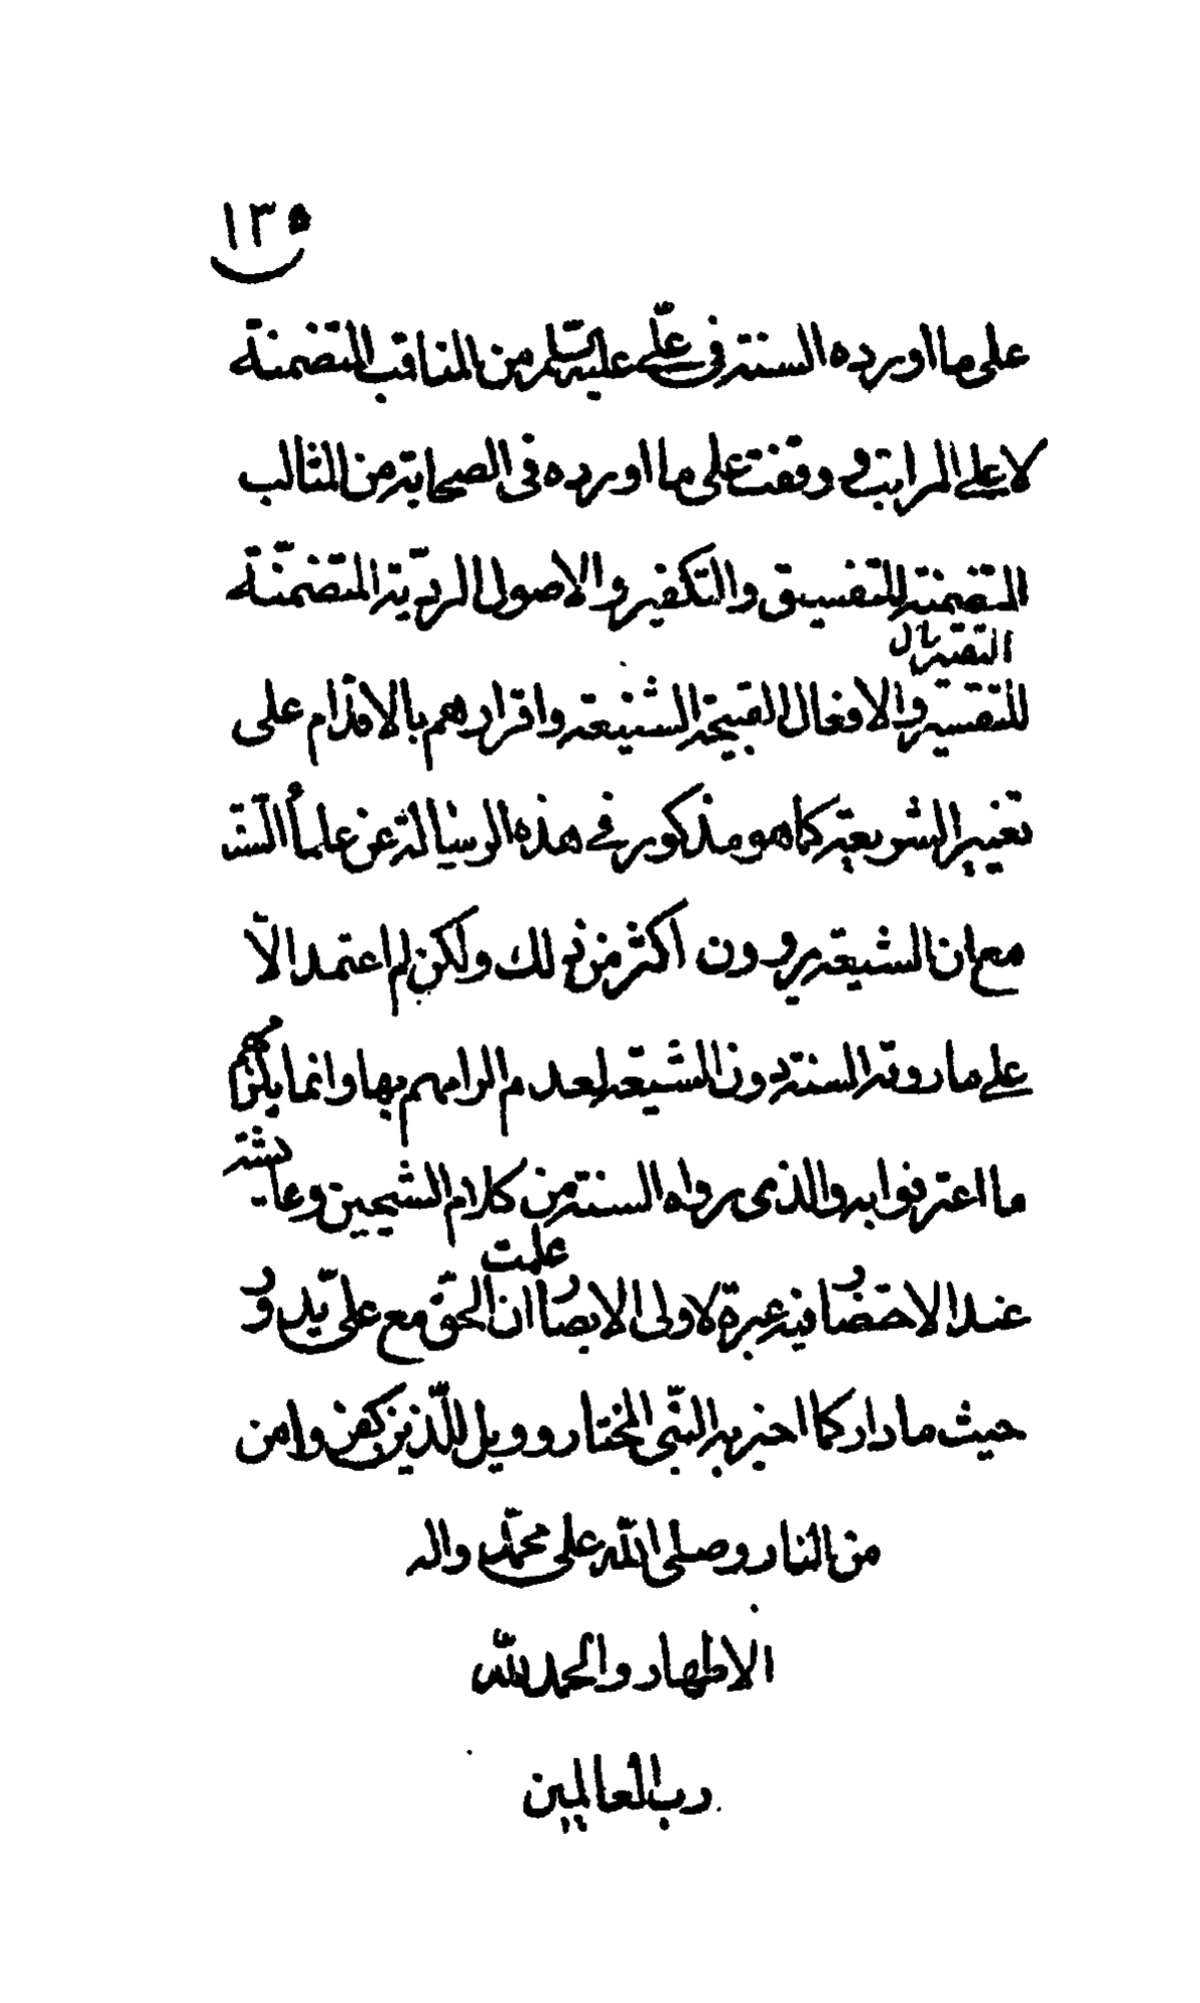 ١٣٥
على ما اورده السنة فى علىّ عليه السّلم من المناقب المتضمنة
لاعلى المراتب و وقفت على ما اورده فى الصحابة من المثالب
المتضمنة للتفسيق والتكفير والاصول الرديّة المتضمنّة
التقتير بال
للتقسير والافعال القبيحة الشنيعة واقرارهم بالاقدام على
تغيير الشريعة كما هو مذكور فى هذه الرسالة عن علمأ السّنة
مع ان الشيعة يروون اكثر من ذلك ولكن لم اعتمد الّا
على ما روته السنة دون الشّيعة لعدم الزامهم بها وانما يلزمهم
ما اعترفوا به والذى رواه السنة من كلام الشيخين وعايشة
علمت
عند الاحتضار فيه عبرة لاولى الابصار ان الحقّ مع علىّ يدور
حيث ما دار كما اخبر به النّبى المختار وويل للّذين كفروا من
من النار وصلى اللّه على محمّد واله
الاطهار والحمد للّه
رب العالمين